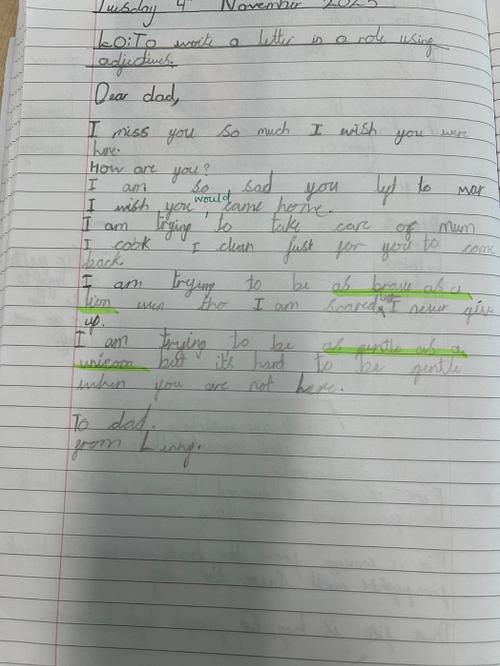 Tuesday 4th November 2025
LO: To write a letter in a role using
adjectives.
Dear dad,
I miss you so much I wish you were
here.
How are you?
I am so sad you lyt to war
I wish you would came home.
I am trying to take care of mum
I cook I clean just for you to come
back
I am trying to be as brave as a
lion even tho I am scared, I never give
up.
I am trying to be as gentle as a
unicorn but it's hard to be gentle
when you are not here.
To dad.
from Linny.